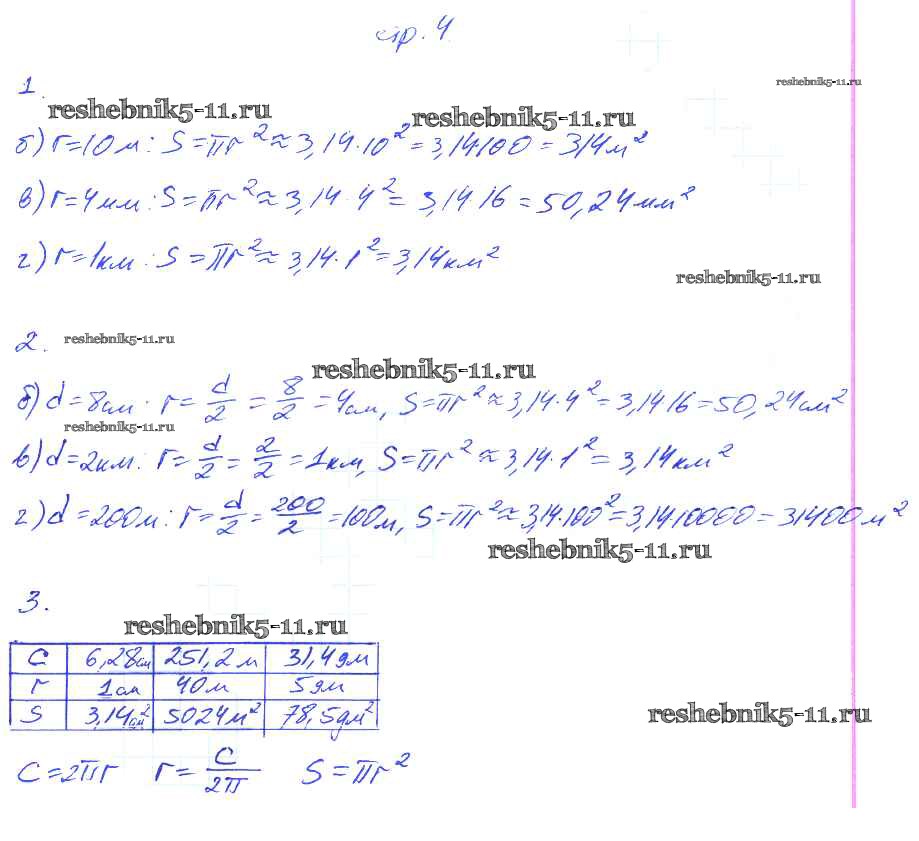 стр. 4
reshebnik5-11.ru
1.
reshebnik5-11.ru reshebnik5-11.ru
б) r=10м: S=πr²≈3,14·10²=3,14·100=314м²
в) r=4мм: S=πr²≈3,14·4²=3,14·16=50,24мм²
г) r=1км: S=πr²≈3,14·1²=3,14км²
reshebnik5-11.ru
2. reshebnik5-11.ru
reshebnik5-11.ru
б) d=8см: r=d/2=8/2=4см, S=πr²≈3,14·4²=3,14·16=50,24см²
reshebnik5-11.ru
в) d=2км: r=d/2=2/2=1км, S=πr²≈3,14·1²=3,14км²
г) d=200м: r=d/2=200/2=100м, S=πr²≈3,14·100²=3,14·10000=31400м²
reshebnik5-11.ru
3.
reshebnik5-11.ru
C 6,28см 251,2м 31,4дм
r 1см 40м 5дм
S 3,14см² 5024м² 78,5дм²
reshebnik5-11.ru
C=2πr r=C/2π S=πr²